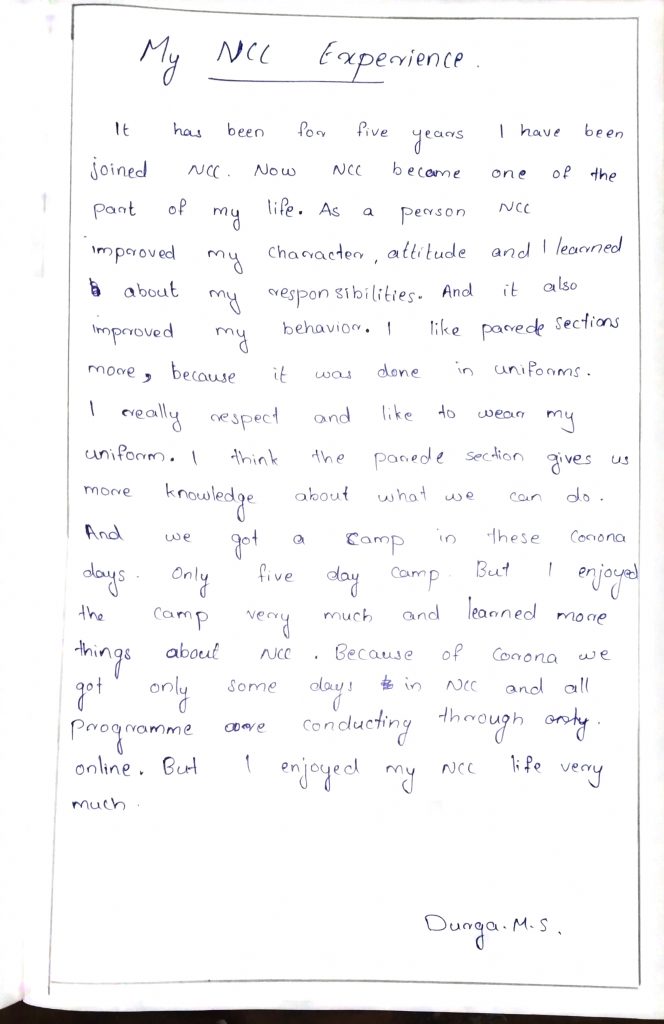 My NCC Experience.
It has been for five years I have been
joined NCC. Now NCC became one of the
part of my life. As a person NCC
improved my character, attitude and I learned
about my responsibilities. And it also
improved my behavior. I like parede sections
more, because it was done in uniforms.
I really respect and like to wear my
uniform. I think the parede section gives us
more knowledge about what we can do.
And we got a camp in these Corona
days. Only five day camp. But I enjoyed
the camp very much and learned more
things about NCC. Because of Corona we
got only some days in NCC and all
programme are conducting through
online. But I enjoyed my NCC life very
much.
Durga.M.S.